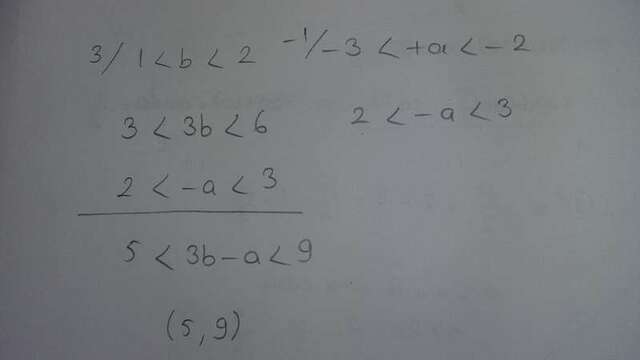 3/ 1 < b < 2 -1/ -3 < +a < -2
3 < 3b < 6 2 < -a < 3
2 < -a < 3
5 < 3b - a < 9
(5, 9)